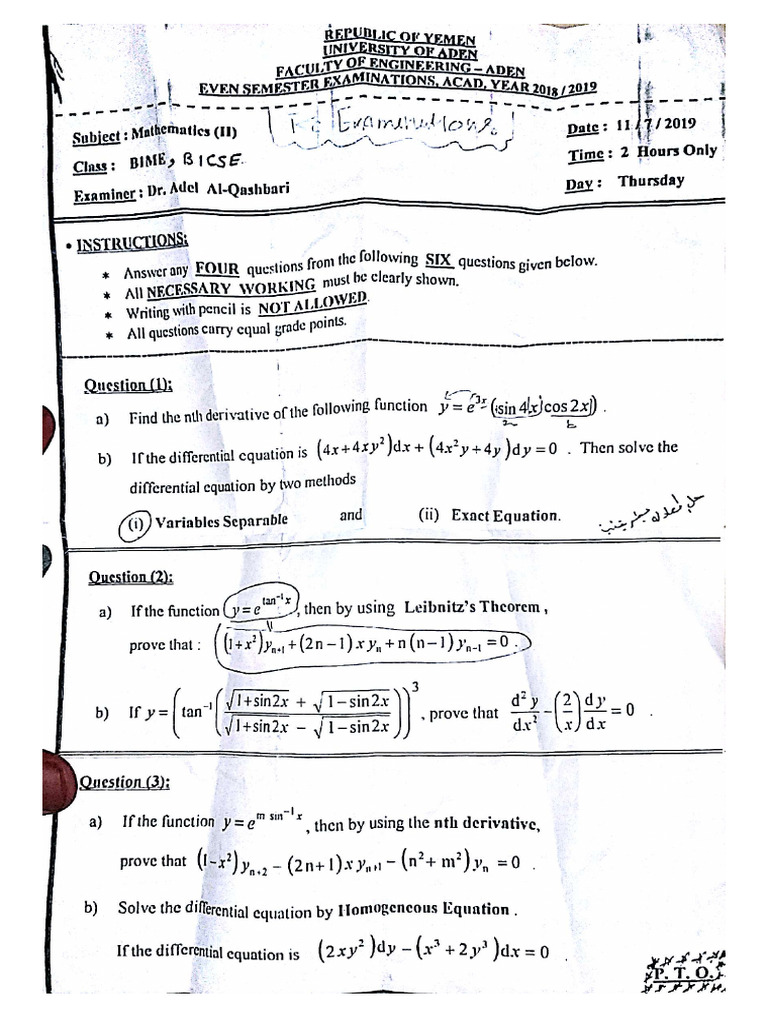 REPUBLIC OF YEMEN
UNIVERSITY OF ADEN
FACULTY OF ENGINEERING – ADEN
EVEN SEMESTER EXAMINATIONS, ACAD, YEAR 2018/2019
Subject : Mathematics (II)
Examinations.
Date : 11/7/2019
Class : BIME, BICSE
Time : 2 Hours Only
Examiner : Dr. Adel Al-Qashbari
Day : Thursday
• INSTRUCTIONS:
* Answer any FOUR questions from the following SIX questions given below.
* All NECESSARY WORKING must be clearly shown.
* Writing with pencil is NOT ALLOWED.
* All questions carry equal grade points.
Question (1):
a) Find the nth derivative of the following function y = e^{3x} (sin 4x cos 2x) .
b) If the differential equation is (4x+4xy²)dx + (4x²y+4y)dy = 0 . Then solve the
differential equation by two methods
(i) Variables Separable and (ii) Exact Equation.
Question (2):
a) If the function y = e^{tan⁻¹x} , then by using Leibnitz's Theorem ,
prove that : (1+x²)yₙ₊₁ + (2n−1) x yₙ + n (n−1) yₙ₋₁ = 0 .
b) If y = (tan⁻¹((√(1+sin2x) + √(1−sin2x))/(√(1+sin2x) − √(1−sin2x))))³ , prove that d²y/dx² − (2/x) dy/dx = 0 .
Question (3):
a) If the function y = e^{m sin⁻¹x} , then by using the nth derivative,
prove that (1−x²)yₙ₊₂ − (2n+1) x yₙ₊₁ − (n² + m²) yₙ = 0 .
b) Solve the differential equation by Homogeneous Equation .
If the differential equation is (2xy²)dy − (x³ + 2y³)dx = 0 .
P. T. O.